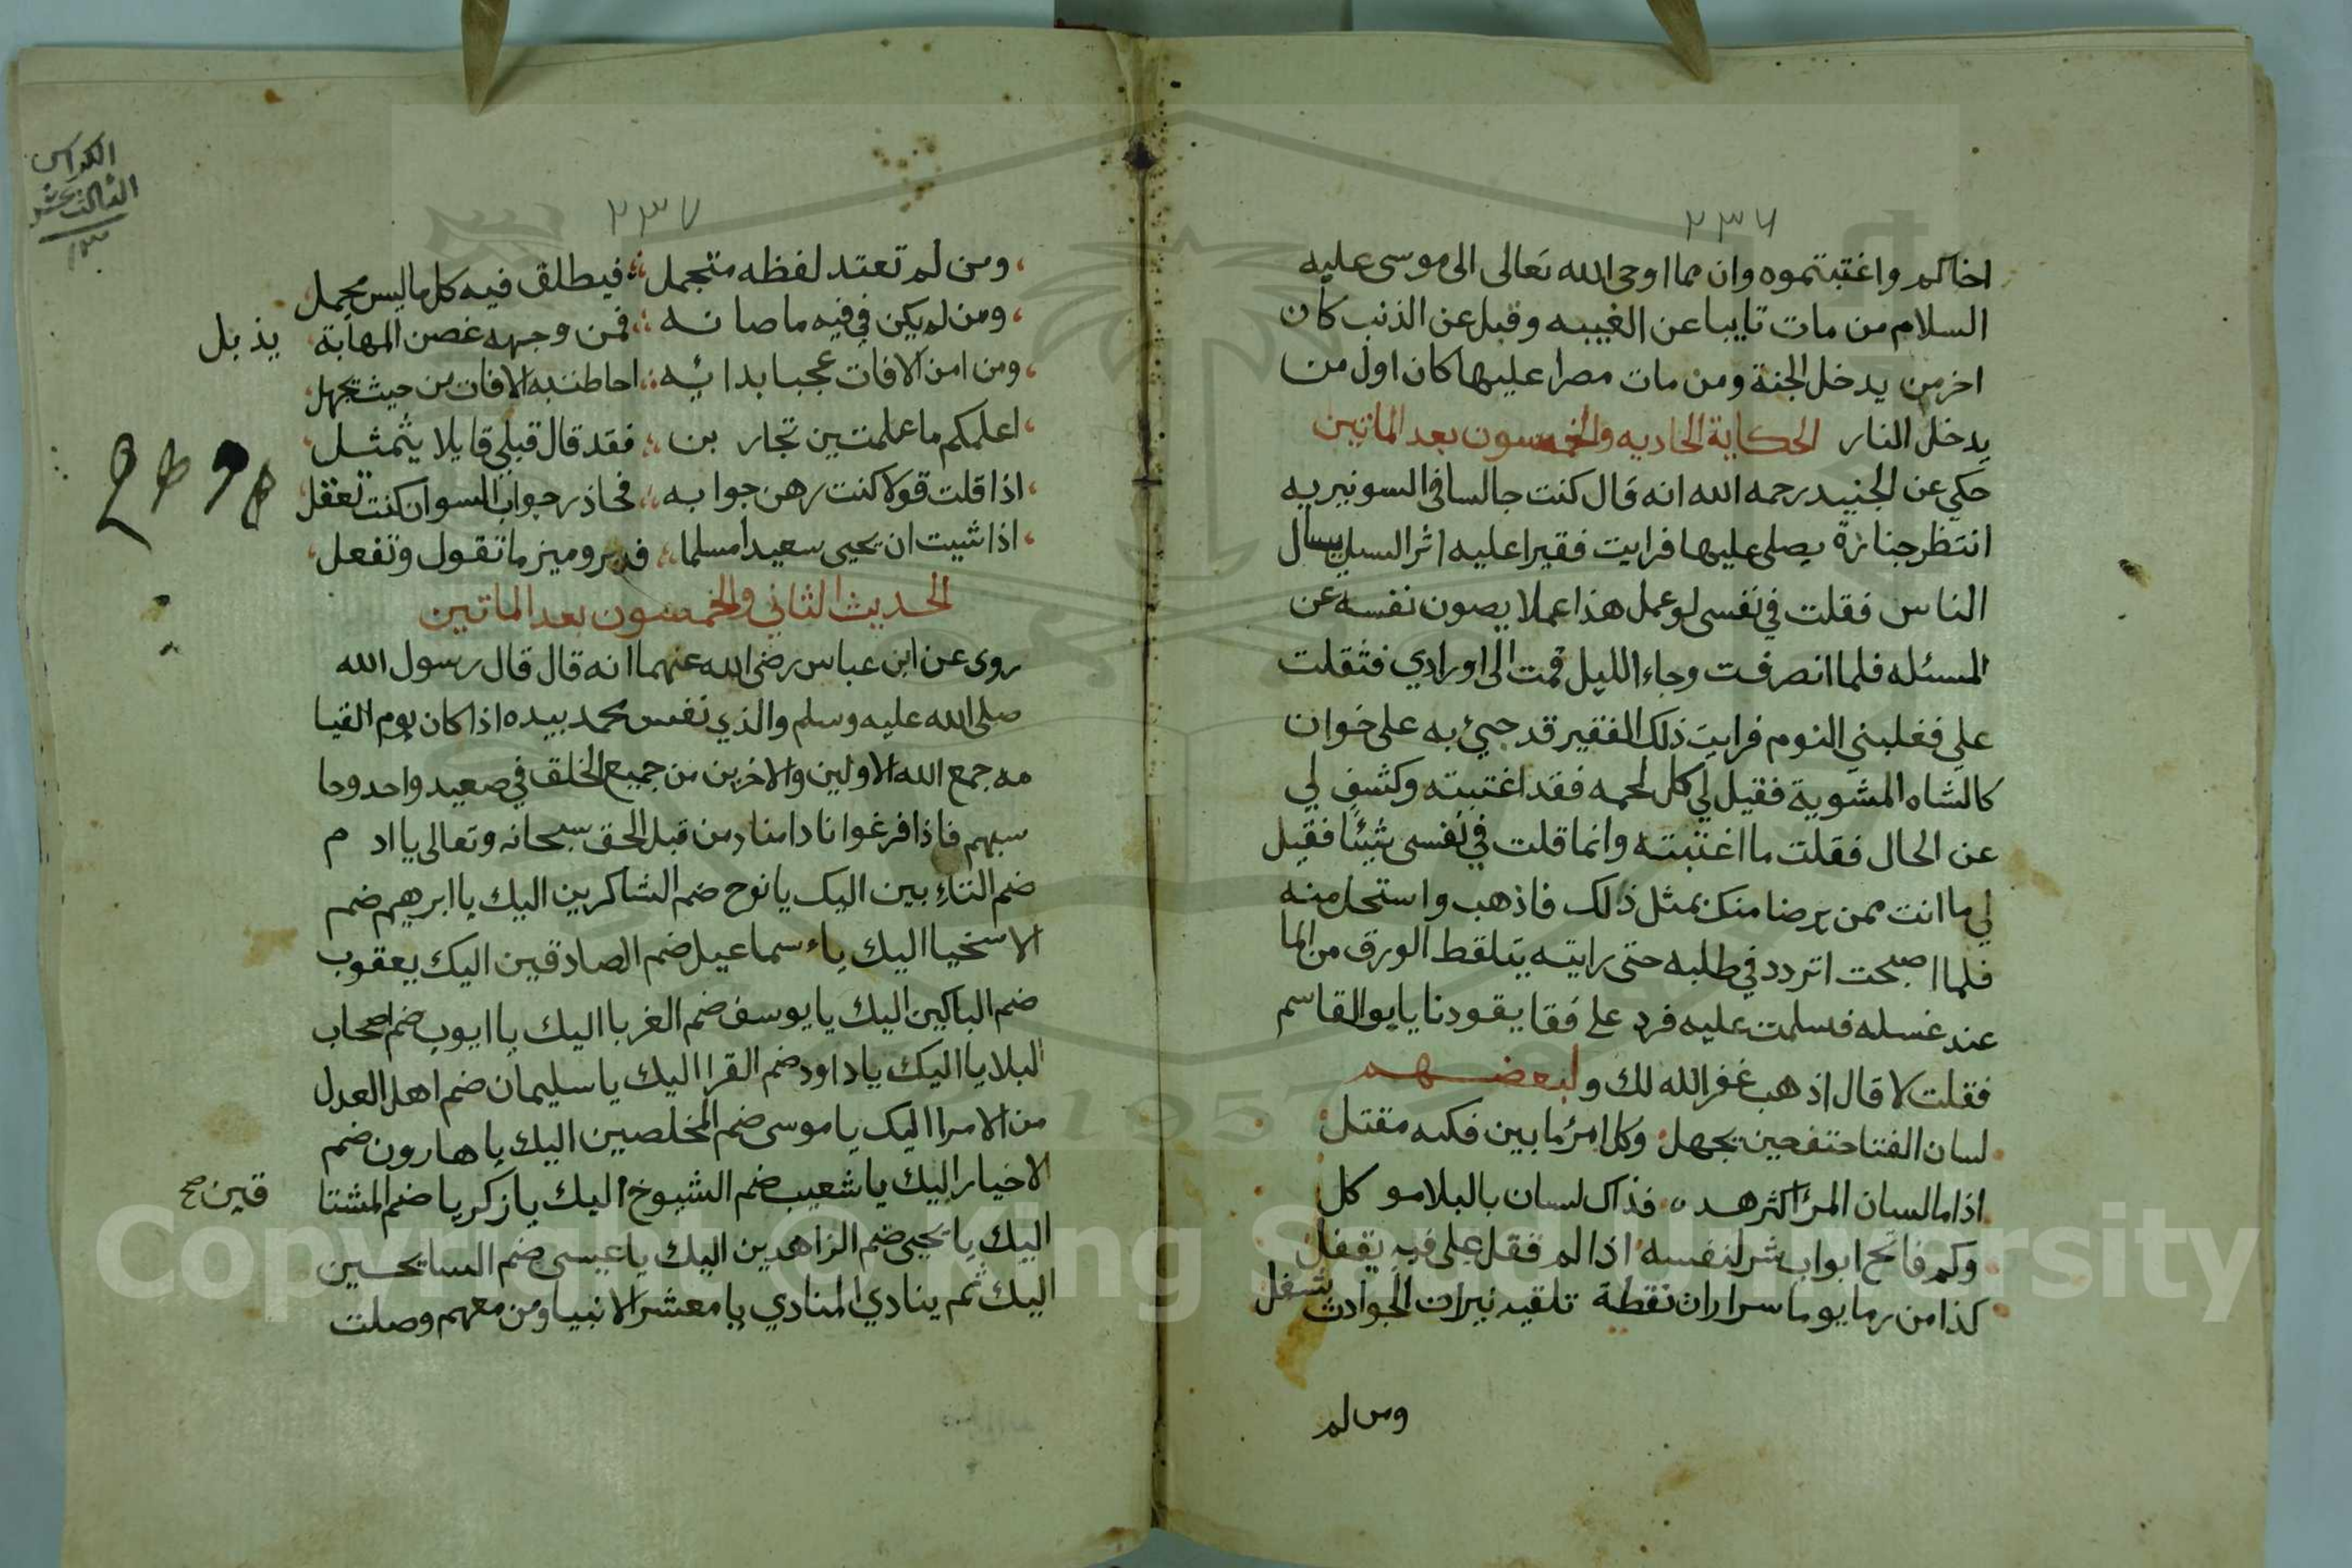 ٢٣٦
اخاكم واغتبتموه وان مما اوحى الله تعالى الى موسى عليه
السلام من مات تايبا عن الغيبه وقبل عن الذنب كان
اخر من يدخل الجنة ومن مات مصرا عليها كان اول من
يدخل النار الحكاية الحاديه والخمسون بعد الماتين
حكي عن الجنيد رحمه الله انه قال كنت جالسا في السونيريه
انتظر جنازة يصلى عليها فرايت فقيرا عليه اثر السبل يسال
الناس فقلت في نفسى لو عمل هذا عملا يصون نفسه عن
المسئله فلما انصرفت وجاء الليل قمت الى اورادي فثقلت
علي فغلبني النوم فرايت ذلك الفقير قد جيئ به على خوان
كالشاه المشوية فقيل لي كل لحمه فقد اغتبته وكشف لي
عن الحال فقلت ما اغتبته وانما قلت في نفسى شيئا فقيل
لي ما انت ممن يرضا منك بمثل ذالك فاذهب واستحل منه
فلما اصبحت اتردد في طلبه حتى رايته يتلقط الورق من الما
عند غسله فسلمت عليه فرد على فقا يقودنا يابو القاسم
فقلت لا قال اذهب غفر الله لك ولبعضهم
لسان الفتا حتف حين يجهل وكل امرئ ما بين فكيه مقتل
اذا ما لسان المرا اكثر هده فذاك لسان بالبلا موكل
وكم فاتح ابواب شر لنفسه اذا لم قفل على فيه يقفل
كذا من رما يوما سرارات نقطة تلقيه نيران الحوادث تشغل
ومن لم
٢٣٧
الكراس
الثالث عشر
١٣
ومن لم تعتد لفظه متجمل فيطلق فيه كل ما ليس يجمل
ومن لم يكن في فيه ما صانه فمن وجهه غصن المهابة يذبل
ومن امن الافات عجبا بدائيه احاطت به الافات من حيث يجهل
اعلمكم ما علمتين تجار بن فقد قال قبلي قايلا يتمثل
اذا قلت قولا كنت رهن جوابه فحاذر جواب السوان كنت تعقل
اذا شيت ان يحيى سعيدا مسلما فدبر وميز ما تقول وتفعل
الحديث الثاني والخمسون بعد الماتين
روى عن ابن عباس رضى الله عنهما انه قال قال رسول الله
صلى الله عليه وسلم والذي نفس محمد بيده اذا كان يوم القيا
مه جمع الله الاولين والاخرين من جميع الخلق في صعيد واحد وحا
سبهم فاذا فرغوا نادا مناد من قبل الحق سبحانه وتعالى يا اد م
ضم التاءبين اليك يا نوح ضم الشاكرين اليك يا ابرهيم ضم
الاسخيا اليك ياء سماعيل ضم الصادقين اليك يعقوب
ضم الباكين اليك يا يوسف ضم الغربا اليك يا ايوب ضم اصحاب
البلايا اليك يا داود ضم القرا اليك يا سليمان ضم اهل العدل
من الامرا اليك يا موسى ضم المخلصين اليك يا هارون ضم
الاخيار اليك يا شعيب ضم الشيوخ اليك يا زكريا ضم المشتا قين صح
اليك يا يحيى ضم الزاهدين اليك يا عيسى ضم السايحين
اليك ثم ينادي المنادي يا معشر الانبيا ومن معهم وصلت
1957
Copyright © King Saud University